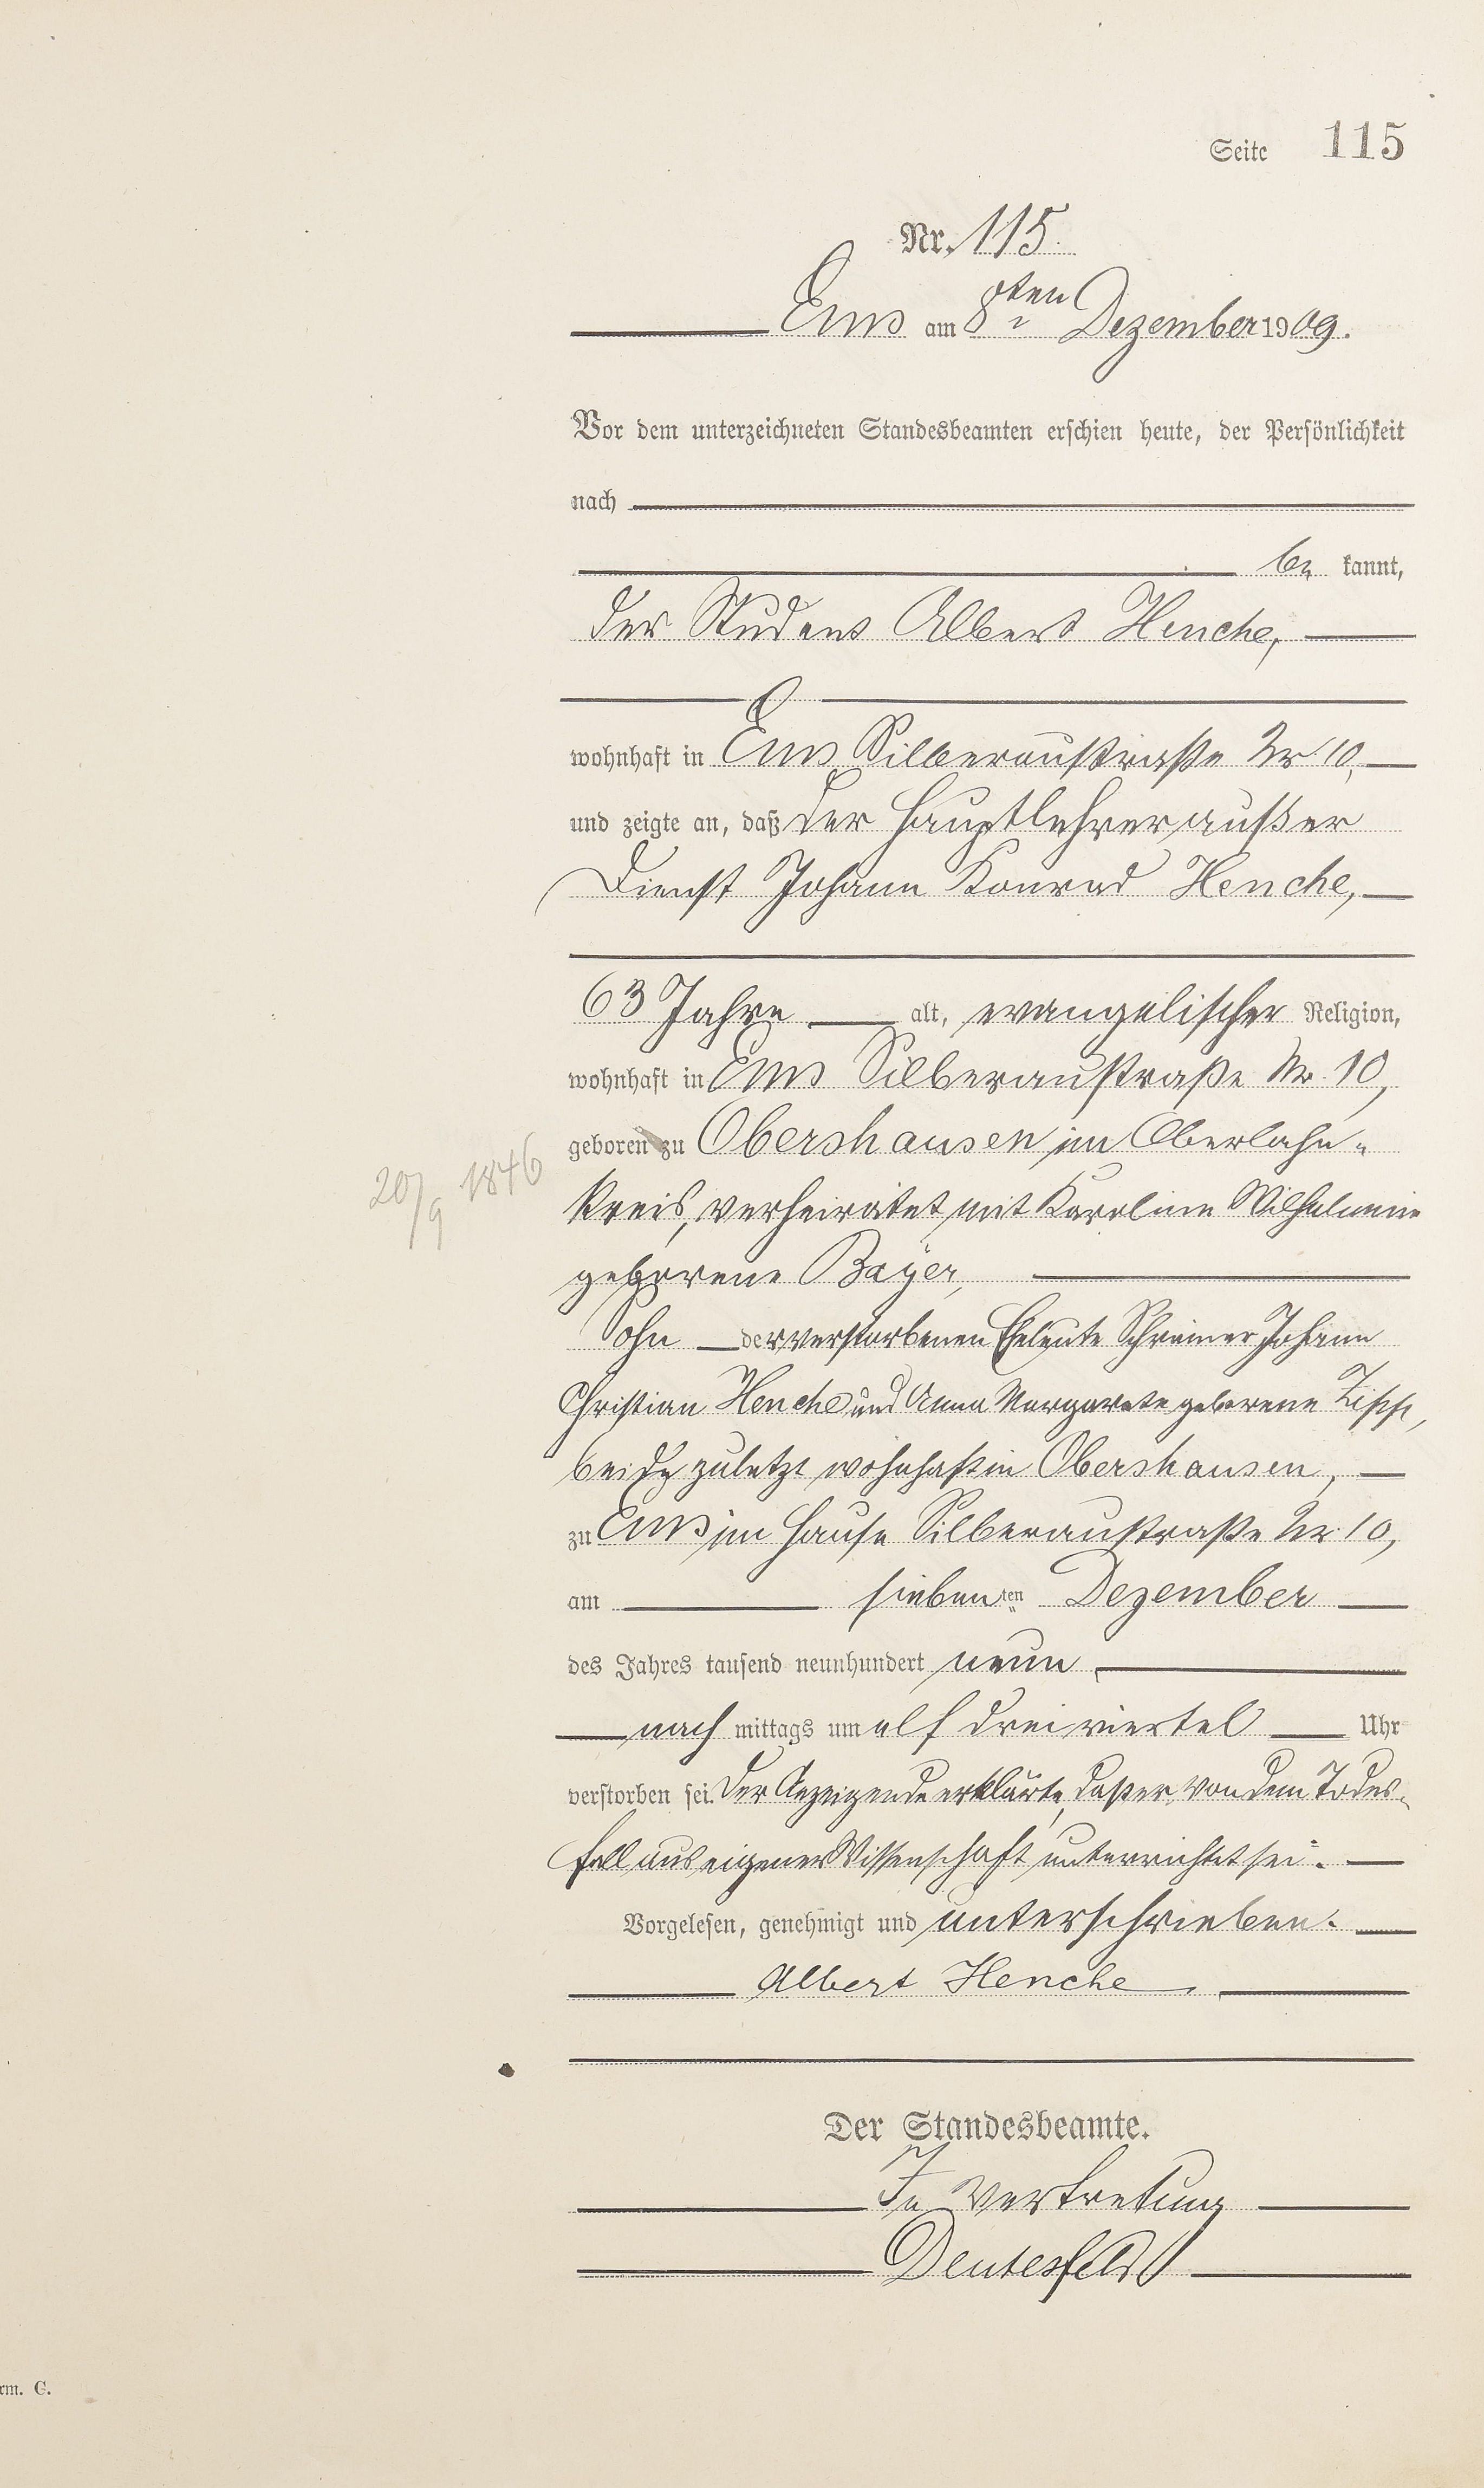 Seite 115
Nr. 115.
Ems am 8ten Dezember 1909.
Vor dem unterzeichneten Standesbeamten erschien heute, der Persönlichkeit
nach
be kannt,
der Student Albert Henche,
wohnhaft in Ems Silberaustraße Nr. 10,
und zeigte an, daß der Hauptlehrer außer
Dienst Johann Konrad Henche,
63 Jahre alt, evangelischer Religion,
wohnhaft in Ems Silberaustraße Nr. 10,
geboren zu Obershausen im Oberlahn-
20/9 1846
kreis, verheiratet mit Karoline Wilhelmine
geborene Bayer,
Sohn der verstorbenen Eheleute Schreiner Johann
Christian Henche und Anna Margarete geborene
beide zuletzt wohnhaft in Obershausen,
zu Ems im Hause Silberaustraße Nr. 10,
am sieben ten Dezember
des Jahres tausend neunhundert neun
nach mittags um elf dreiviertel Uhr
verstorben sei. Der Anzeigende erklärte, daß er von dem Todes-
fall aus eigener Wissenschaft unterrichtet sei.
Vorgelesen, genehmigt und unterschrieben.
Albert Henche
Der Standesbeamte.
In Vertretung
rm. G.